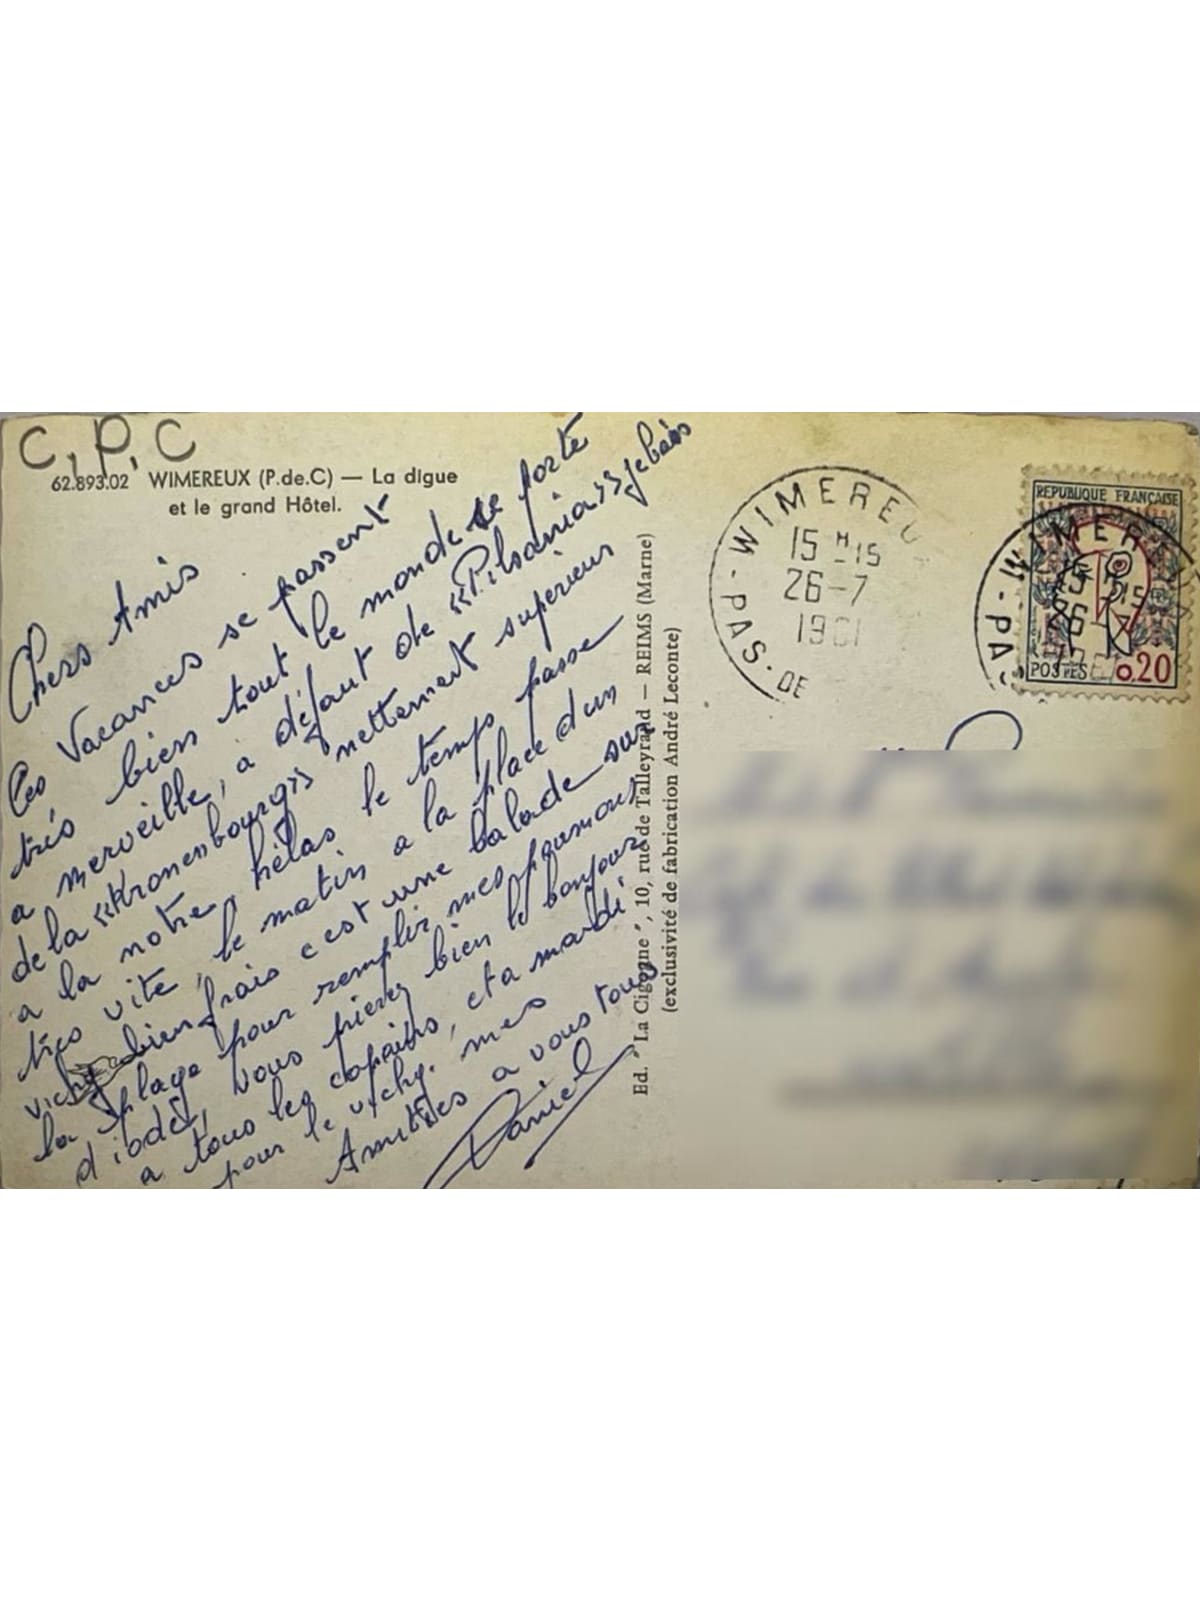 C.P.C
62.893.02 WIMEREUX (P.de.C) — La digue
et le grand Hôtel.
Chers Amis
Les Vacances se passent
très bien tout le monde se porte
a merveille, a défaut de «Pilsania» je bois
de la «Kronenbourg» nettement superieur
a la notre, hélas le temps passe
très vite, le matin a la place d'un
vichy bien frais c'est une balade sur
la plage pour remplir mes poumons
d'iode, vous pierez bien le bonjour
a tous les copains, et a mardi
pour le vichy. mes
Amitiés a vous tous
Daniel
Ed. "La Cigogne", 10, rue de Talleyrand — REIMS (Marne)
(exclusivité de fabrication André Leconte)
WIMEREU
15 H 15
26-7
1961
PAS-DE
REPUBLIQUE FRANÇAISE
POSTES 0,20
WIMERE
15 H 15
26
PA